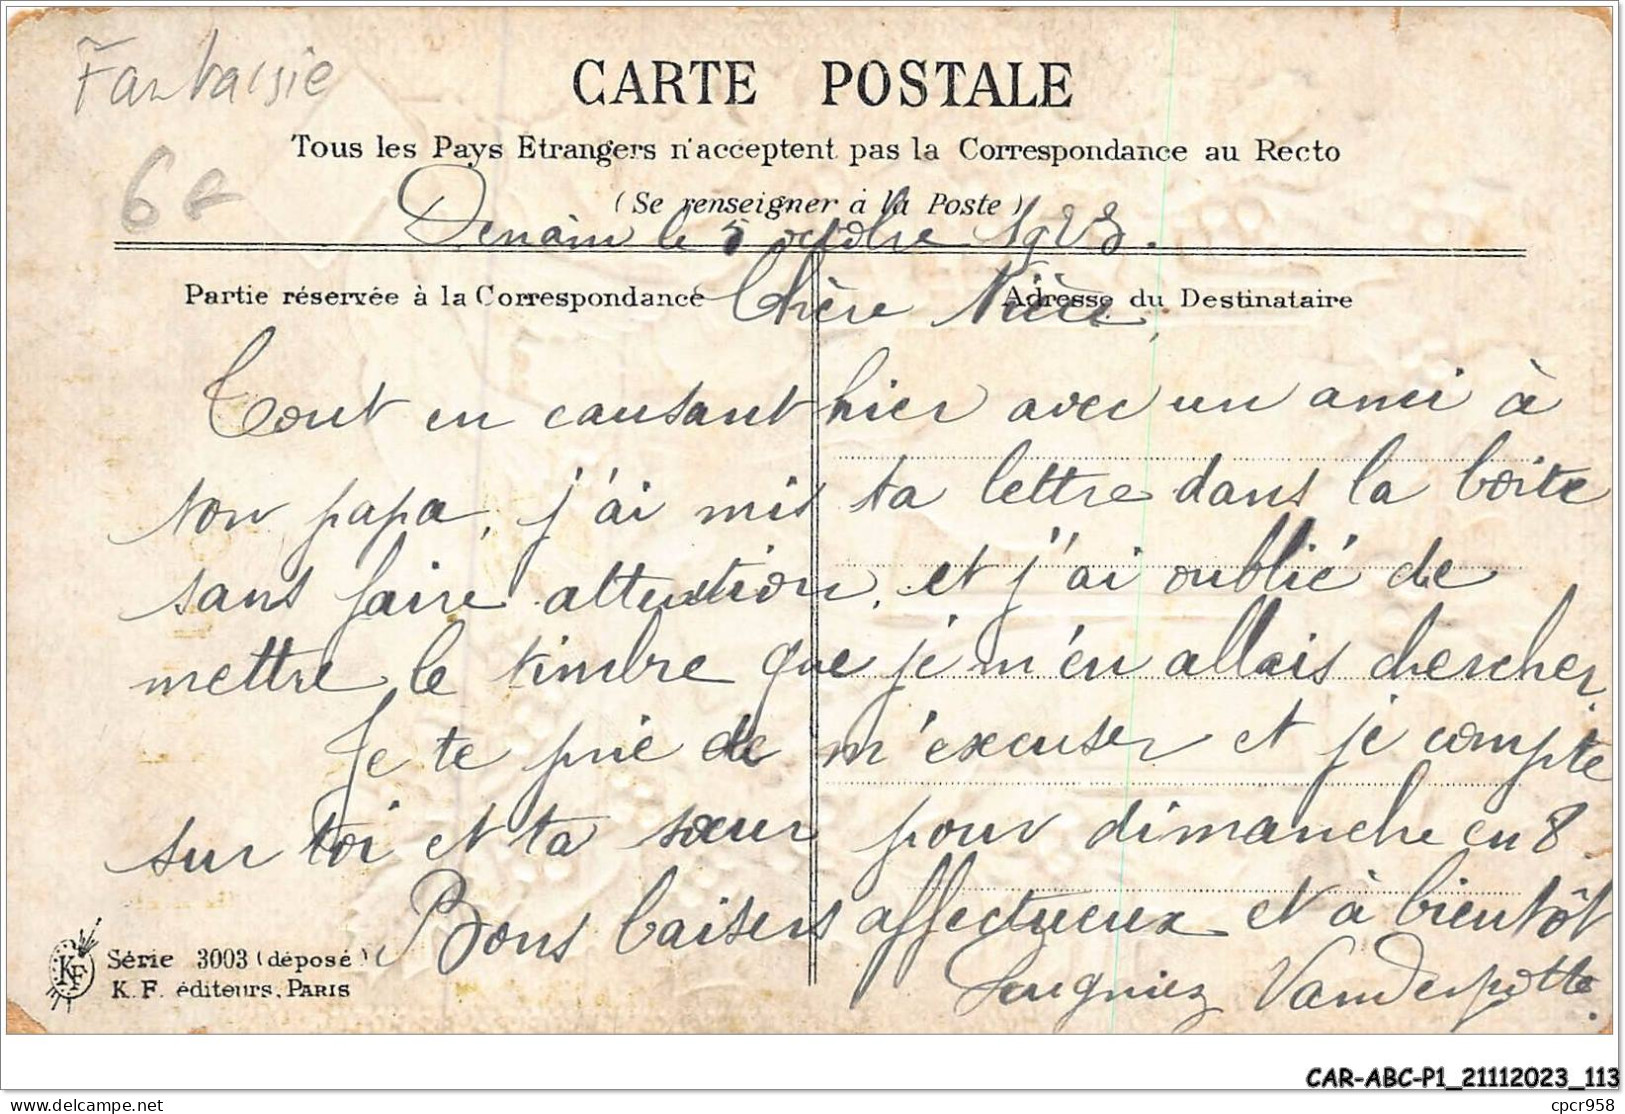 Fantaisie
CARTE POSTALE
Tous les Pays Etrangers n'acceptent pas la Correspondance au Recto
6€
(Se renseigner à la Poste)
Denain le 5 octobre 1923.
Partie réservée à la Correspondance
Adresse du Destinataire
Chère Nièce,
Tout en causant hier avec un ami à
ton papa, j'ai mis ta lettre dans la boîte
sans faire attention, et j'ai oublié de
mettre le timbre que je m'en allais chercher.
Je te prie de m'excuser et je compte
sur toi et ta sœur pour dimanche en 8.
Bons baisers affectueux et à bientôt
Vanderpotte.
KF
Série 3003 (déposé)
K. F. éditeurs, PARIS
CAR-ABC-P1_21112023_113
delcampe.net
cpcr958